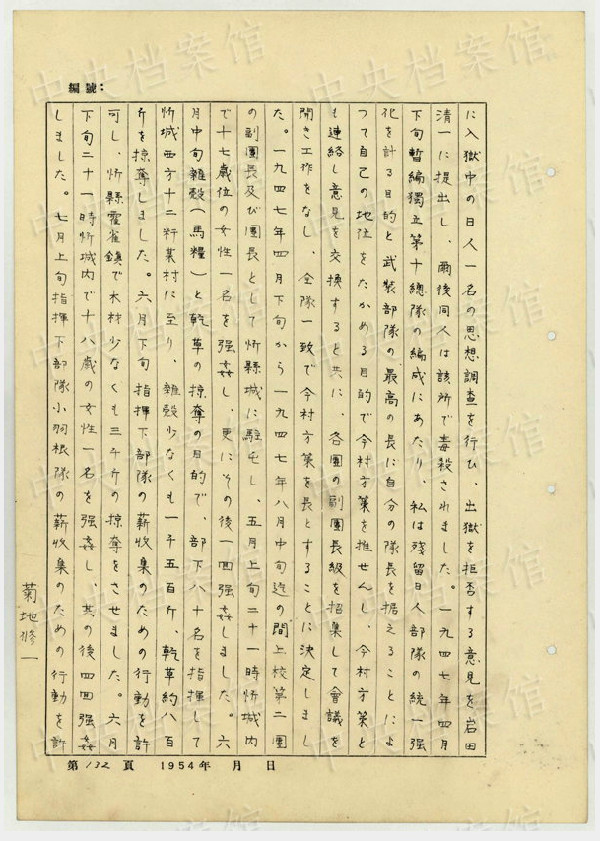 編號:
に入獄中の日人一名の思想調査を行ひ、出獄を拒否する意見を岩田
清一に提出し、爾後同人は該所で毒殺されました。一九四七年四月
下旬暫編獨立第十總隊の編成にあたり、私は残留日人部隊の統一強
化を計る目的と武装部隊の最高の長に自分の隊長を据えることによ
つて自己の地位をたかめる目的で今村方策を推せんし、今村方策と
も連絡し意見を交換すると共に、各團の副團長級を招集して會議を
開き工作をなし、全隊一致で今村方策を長とすることに決定しまし
た。一九四七年四月下旬から一九四七年八月中旬迄の間上校第二團
の副團長及び團長として忻縣城に駐屯し、五月上旬二十一時忻城内
で十七歳位の女性一名を强姦し、更にその後一回强姦しました。六
月中旬雜穀(馬糧)と乾草の掠奪の目的で、部下八十名を指揮して
忻城西方十二粁某村に至り、雜穀少なくも一千五百斤、乾草約八百
斤を掠奪しました。六月下旬指揮下部隊の薪收集のための行動を許
可し、忻縣霍雀鎮で木材少なくも三千斤の掠奪をさせました。六月
下旬二十一時忻城内で十八歳の女性一名を强姦し、其の後四回强姦
しました。七月上旬指揮下部隊小羽根隊の薪收集のための行動を許
菊地修一
第132頁 1954年 月 日
中央档案馆